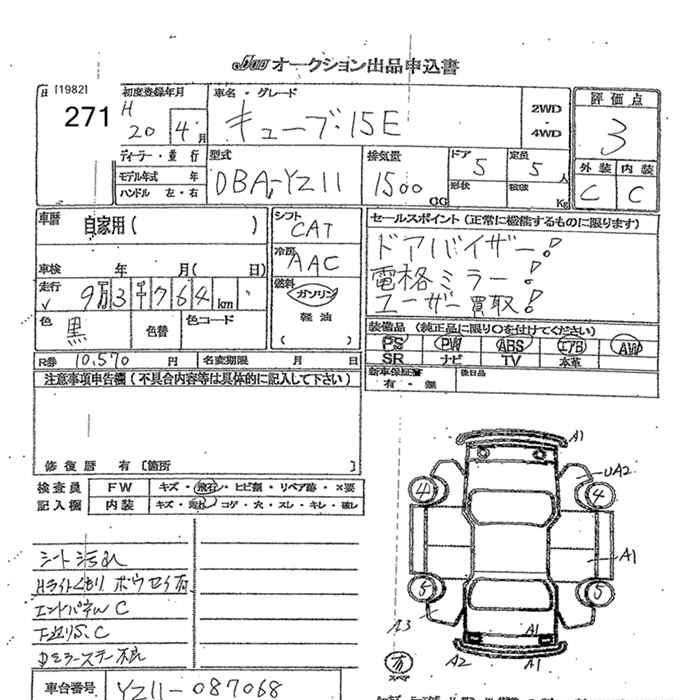 オークション出品申込書
[1982]
271
初度登録年月
H
20 4 月
車名・グレード
キューブ・15E
2WD
・
4WD
評価点
3
外装 内装
C C
ディーラー・並行
モデル年式 年
ハンドル 左・右
型式
DBA-YZ11
排気量
1500 CC
ドア 5
形状
定員 5 人
積載 Kg
車歴 自家用( )
車検 年 月( 日)
走行 9万3千764 km
色 黒
色替
色コード
シフト
CAT
冷房
AAC
燃料
ガソリン
軽油
( )
セールスポイント(正常に機能するものに限ります)
ドアバイザー!
電格ミラー!
ユーザー買取!
装備品(純正品に限り○を付けてください)
PS PW ABS エアB AW
SR ナビ TV 本革
新車保証書
有・無
後日品
R券 10,570 円
名変期限 月 日
注意事項申告欄(不具合内容等は具体的に記入して下さい)
修復歴 有 [箇所 ]
検査員
記入欄
FW キズ・飛石・ヒビ割・リペア跡・×要
内装 キズ・汚れ・コゲ・穴・スレ・キレ・破レ
シート汚れ
Hライトくもり ボウセイ有
エンドパネルC
下廻りS.C
Dミラーステー不良
車台番号 YZ11-087068
A1
UA2
4 4
A1
5 5
A3
A1
A2 A1
有
スペア